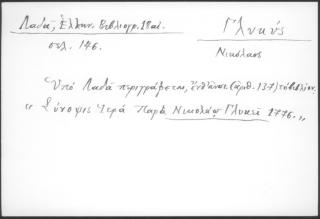 Λαδᾶ, Ἑλλην. Βιβλιογρ. 18 αἰ.
σελ. 146.
Γλυκύς
Νικόλαος
Ὑπό Λαδᾶ περιγράφεται, ἐνθ' ἄνω (ἀριθ. 137) τό βιβλίον.
"Σύνοψις Ἱερά Παρά Νικολάῳ Γλυκεῖ 1776."